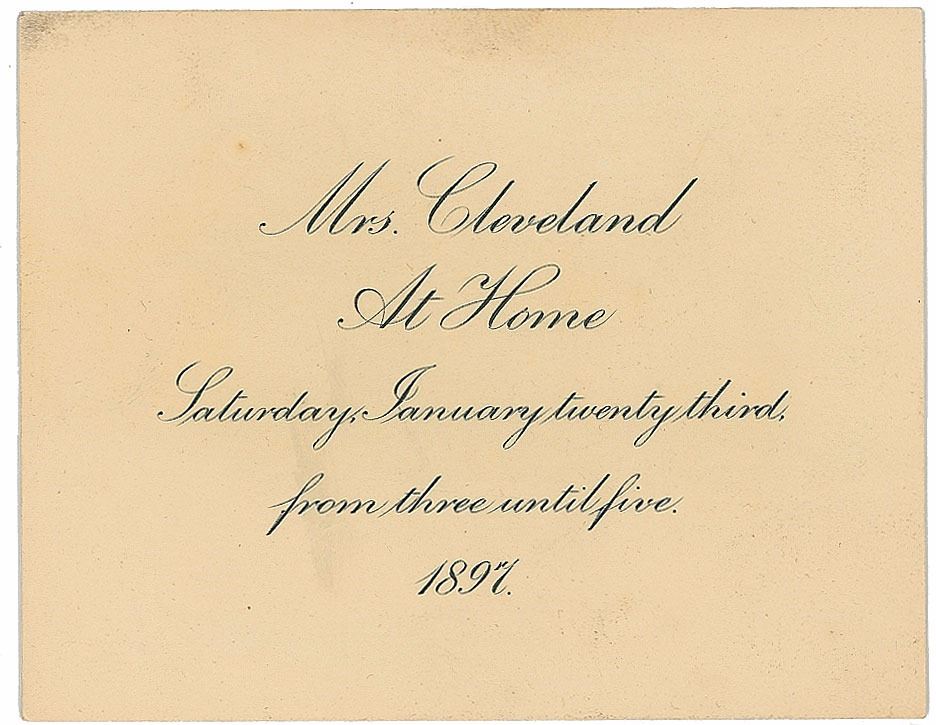 Mrs. Cleveland
At Home
Saturday, January twenty third,
from three until five.
1897.